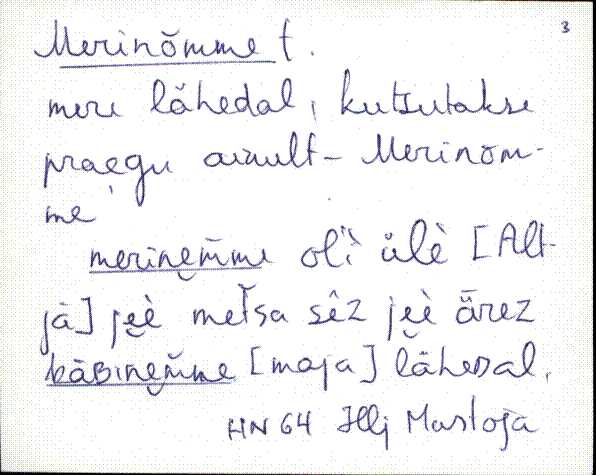 3
Merinõmme t.
mere lähedal, kutsutakse
praegu ainult - Merinõm-
me
merinem̆me oli ülè [Alt-
jā] jeè metsa sêz jeè ǟrez
kāʙinem̆me [maja] läheᴅal.
HN 64 Illj Mustoja